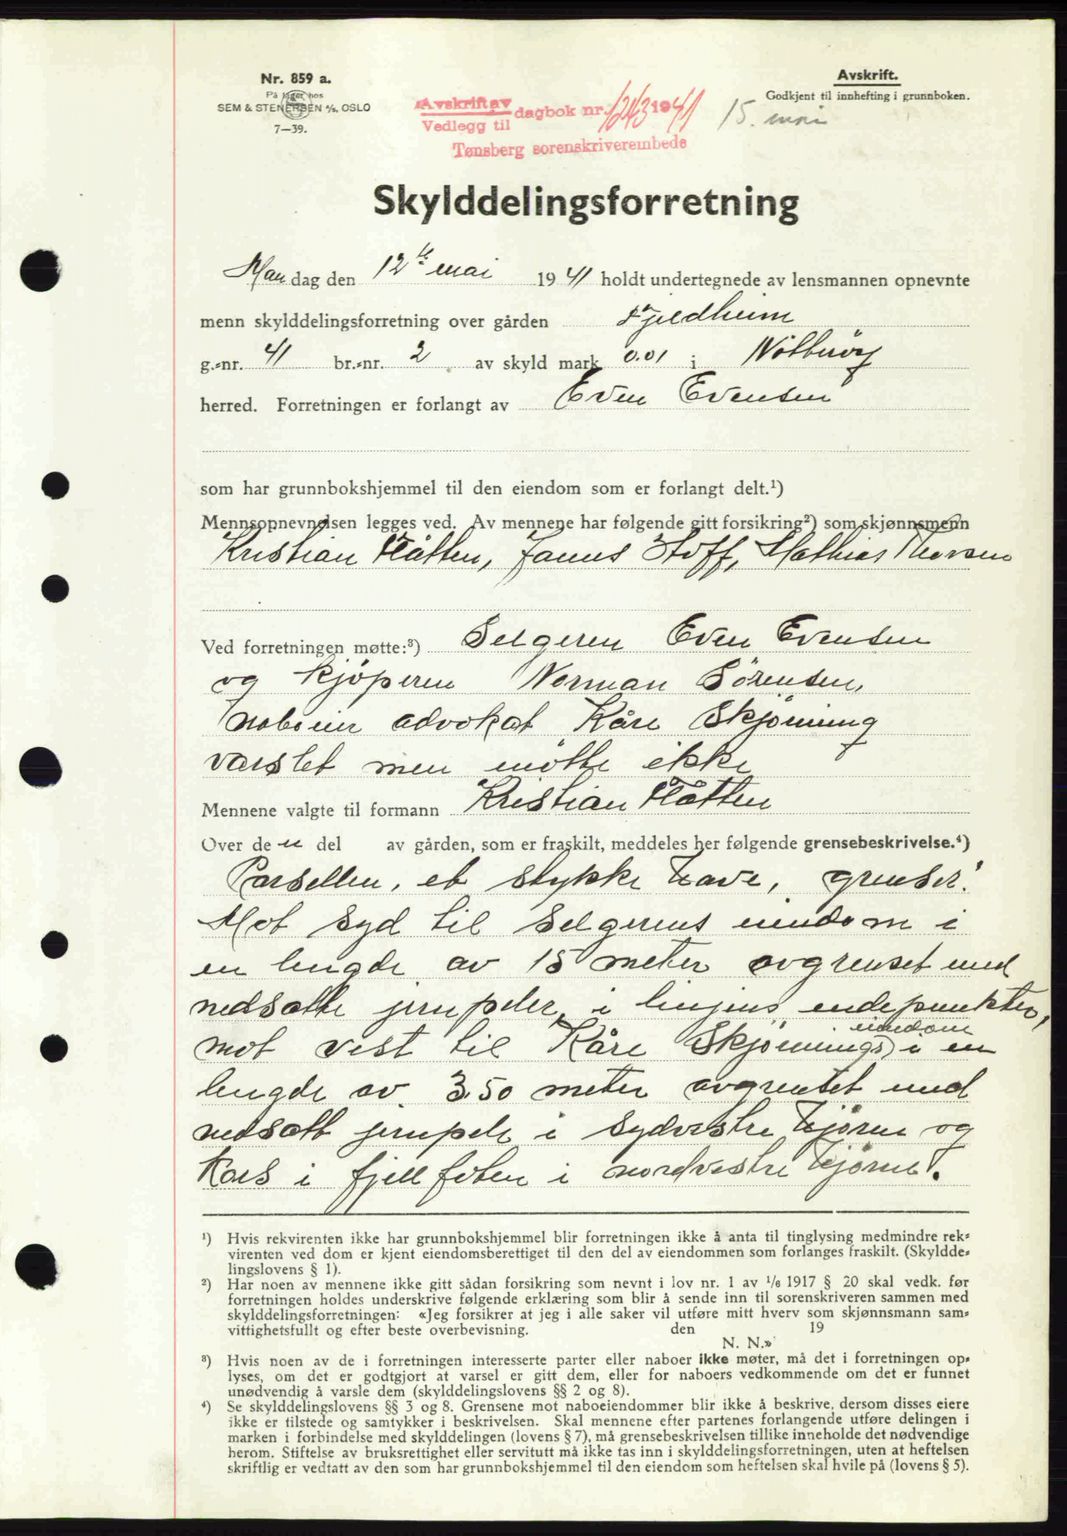 Nr. 859 a.
På lager hos
SEM & STENERSEN A/S, OSLO
7—39.
Avskrift av
Vedlegg til dagbok nr. 1243 1941
Tønsberg sorenskriverembede
15. mai
Avskrift.
Godkjent til innhefting i grunnboken.
Skylddelingsforretning
Mandag den 12te mai 1941 holdt undertegnede av lensmannen opnevnte
menn skylddelingsforretning over gården Fjeldheim
g.-nr. 41 br.-nr. 2 av skyld mark 0.01 i Nötteröy
herred. Forretningen er forlangt av Even Evensen
som har grunnbokshjemmel til den eiendom som er forlangt delt.¹)
Mennsopnevnelsen legges ved. Av mennene har følgende gitt forsikring²) som skjønnsmenn
Kristian Flåtten, Janus Hoff, Mathias Thorsen
Ved forretningen møtte:³) Selgeren Even Evensen
og kjöperen Norman Sörensen,
naboeier advokat Kåre Skjönning
varslet men mötte ikke
Mennene valgte til formann Kristian Flåtten
Over den del av gården, som er fraskilt, meddeles her følgende grensebeskrivelse.⁴)
Parsellen, et stykke have, grenser:
Mot syd til selgerens eiendom i
en lengde av 15 meter avgrenset med
nedsatte jernpeler i linjens endepunkter,
mot vest til Kåre Skjönnings eiendom i en
lengde av 3.50 meter avgrenset med
nedsatt jernpele i sydvestre hjörne og
kors i fjellfoten i nordvestre hjörne.
¹) Hvis rekvirenten ikke har grunnbokshjemmel blir forretningen ikke å anta til tinglysing medmindre rek-
virenten ved dom er kjent eiendomsberettiget til den del av eiendommen som forlanges fraskilt. (Skyldde-
lingslovens § 1).
²) Har noen av mennene ikke gitt sådan forsikring som nevnt i lov nr. 1 av ¹/₆ 1917 § 20 skal vedk. før
forretningen holdes underskrive følgende erklæring som blir å sende inn til sorenskriveren sammen med
skylddelingsforretningen: «Jeg forsikrer at jeg i alle saker vil utføre mitt hverv som skjønnsmann sam-
vittighetsfullt og efter beste overbevisning. den 19
N. N.»
³) Hvis noen av de i forretningen interesserte parter eller naboer ikke møter, må det i forretningen op-
lyses, om det er godtgjort at varsel er gitt dem, eller for naboers vedkommende om det er funnet
unødvendig å varsle dem (skylddelingslovens §§ 2 og 8).
⁴) Se skylddelingslovens §§ 3 og 8. Grensene mot naboeiendommer blir ikke å beskrive, dersom disses eiere
ikke er tilstede og samtykker i beskrivelsen. Skal mennene efter partenes forlangende utføre delingen i
marken i forbindelse med skylddelingen (lovens § 7), må grensebeskrivelsen tillike inneholde det nødvendige
herom. Stiftelse av bruksrettighet eller servitutt må ikke tas inn i skylddelingsforretningen, uten at heftelsen
skriftlig er vedtatt av den som har grunnbokshjemmel til den eiendom som heftelsen skal hvile på (lovens § 5).